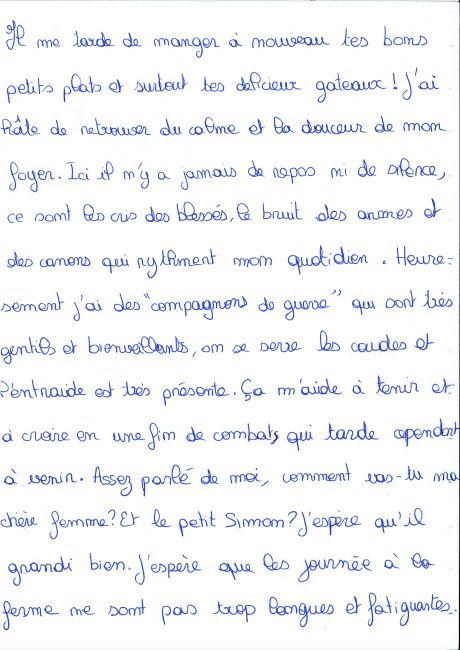 Il me tarde de manger à nouveau tes bons
petits plats et surtout tes délicieux gateaux ! J'ai
hâte de retrouver du calme et la douceur de mon
foyer. Ici il n'y a jamais de repos ni de silence,
ce sont les cris des blessés, le bruit des armes et
des canons qui rythment mon quotidien. Heureu-
sement j'ai des "compagnons de guerre" qui sont très
gentils et bienveillants, on se serre les coudes et
l'entraide est très présente. Ça m'aide à tenir et
à croire en une fin de combats, qui tarde cependant
à venir. Assez parlé de moi, comment vas-tu ma
chère femme? Et le petit Simon? J'espère qu'il
grandi bien. J'espère que les journée à la
ferme ne sont pas trop longues et fatiguantes.